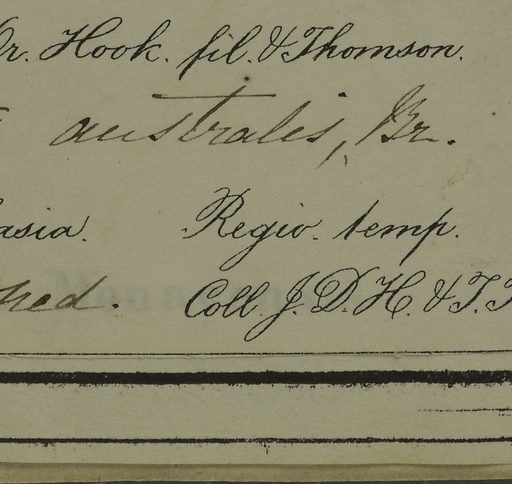 Dr. Hook. fil. & Thomson.
australis, Br.
asia. Regio temp.
Coll. J. D. H. & T. T